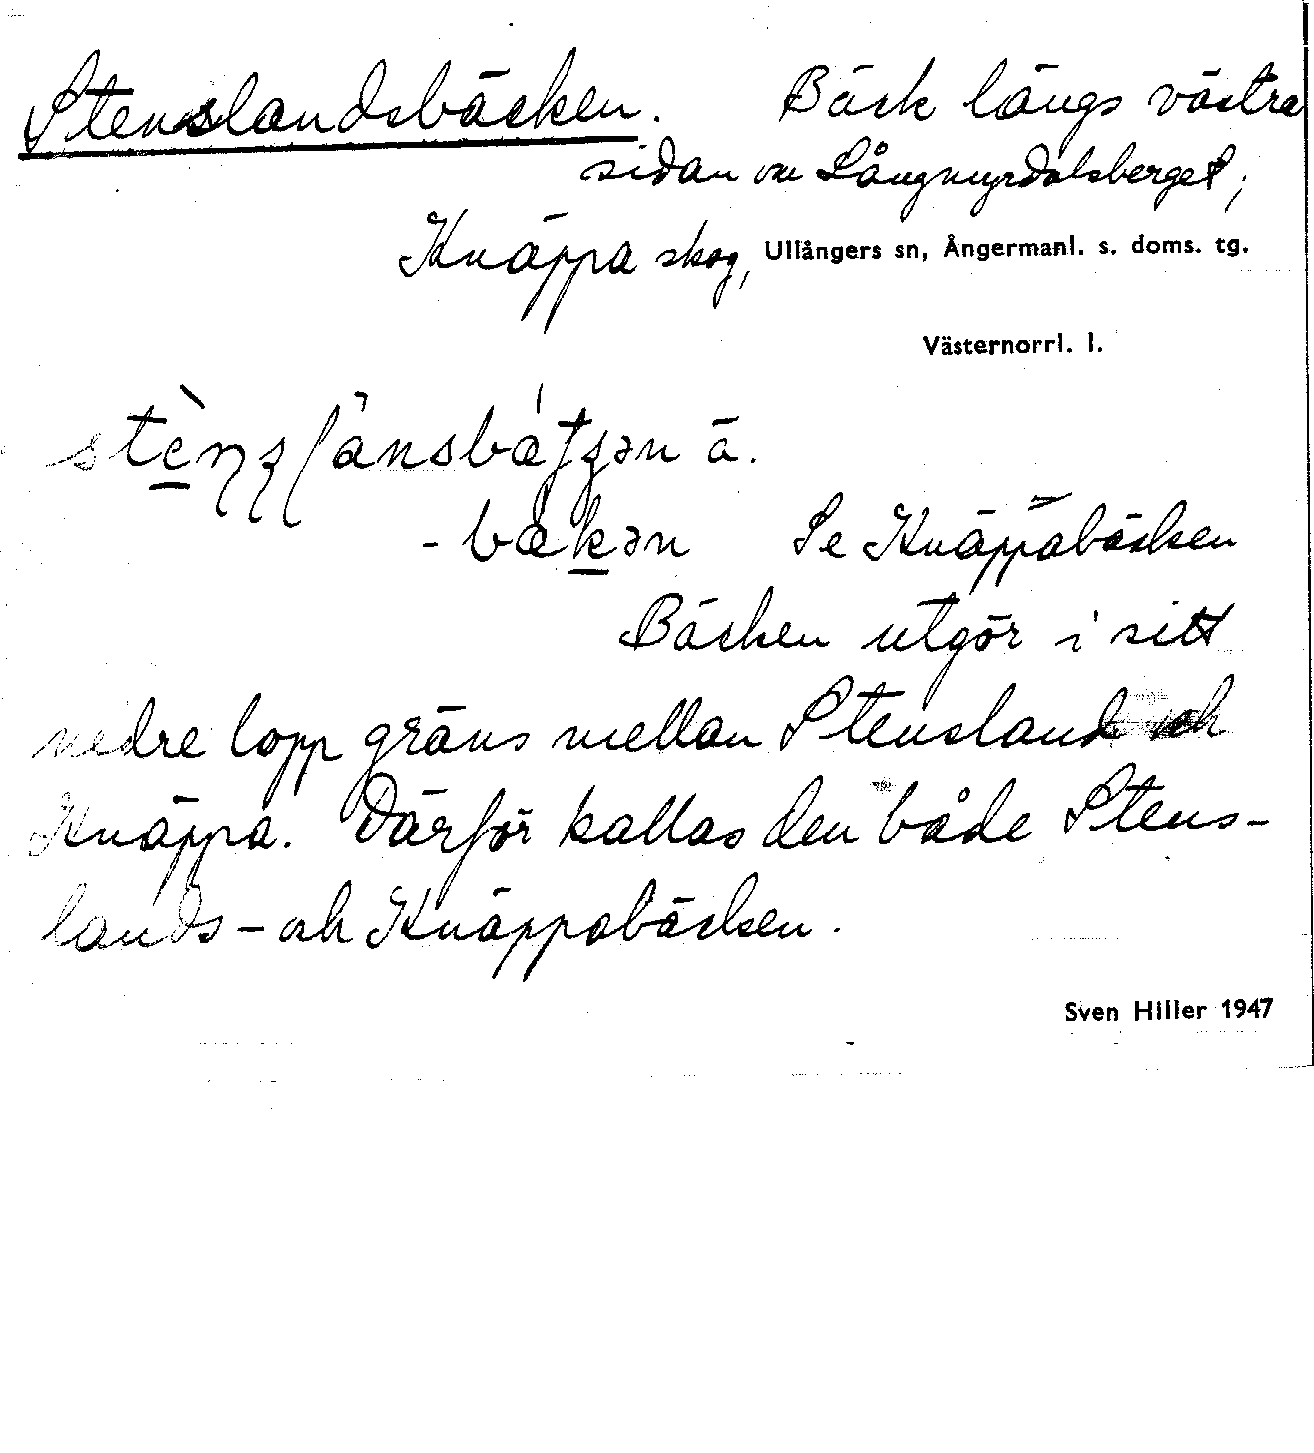 Stenslandsbäcken. Bäck längs västra
sidan om Långmyrdalsberget;
Knäppa skog, Ullångers sn, Ångermanl. s. doms. tg.
Västernorrl. l.
ä.
Se Knäppabäcken
Bäcken utgör i sitt
nedre lopp gräns mellan Stensland och
Knäppa. Därför kallas den både Stens-
lands- och Knäppabäcken.
Sven Hiller 1947